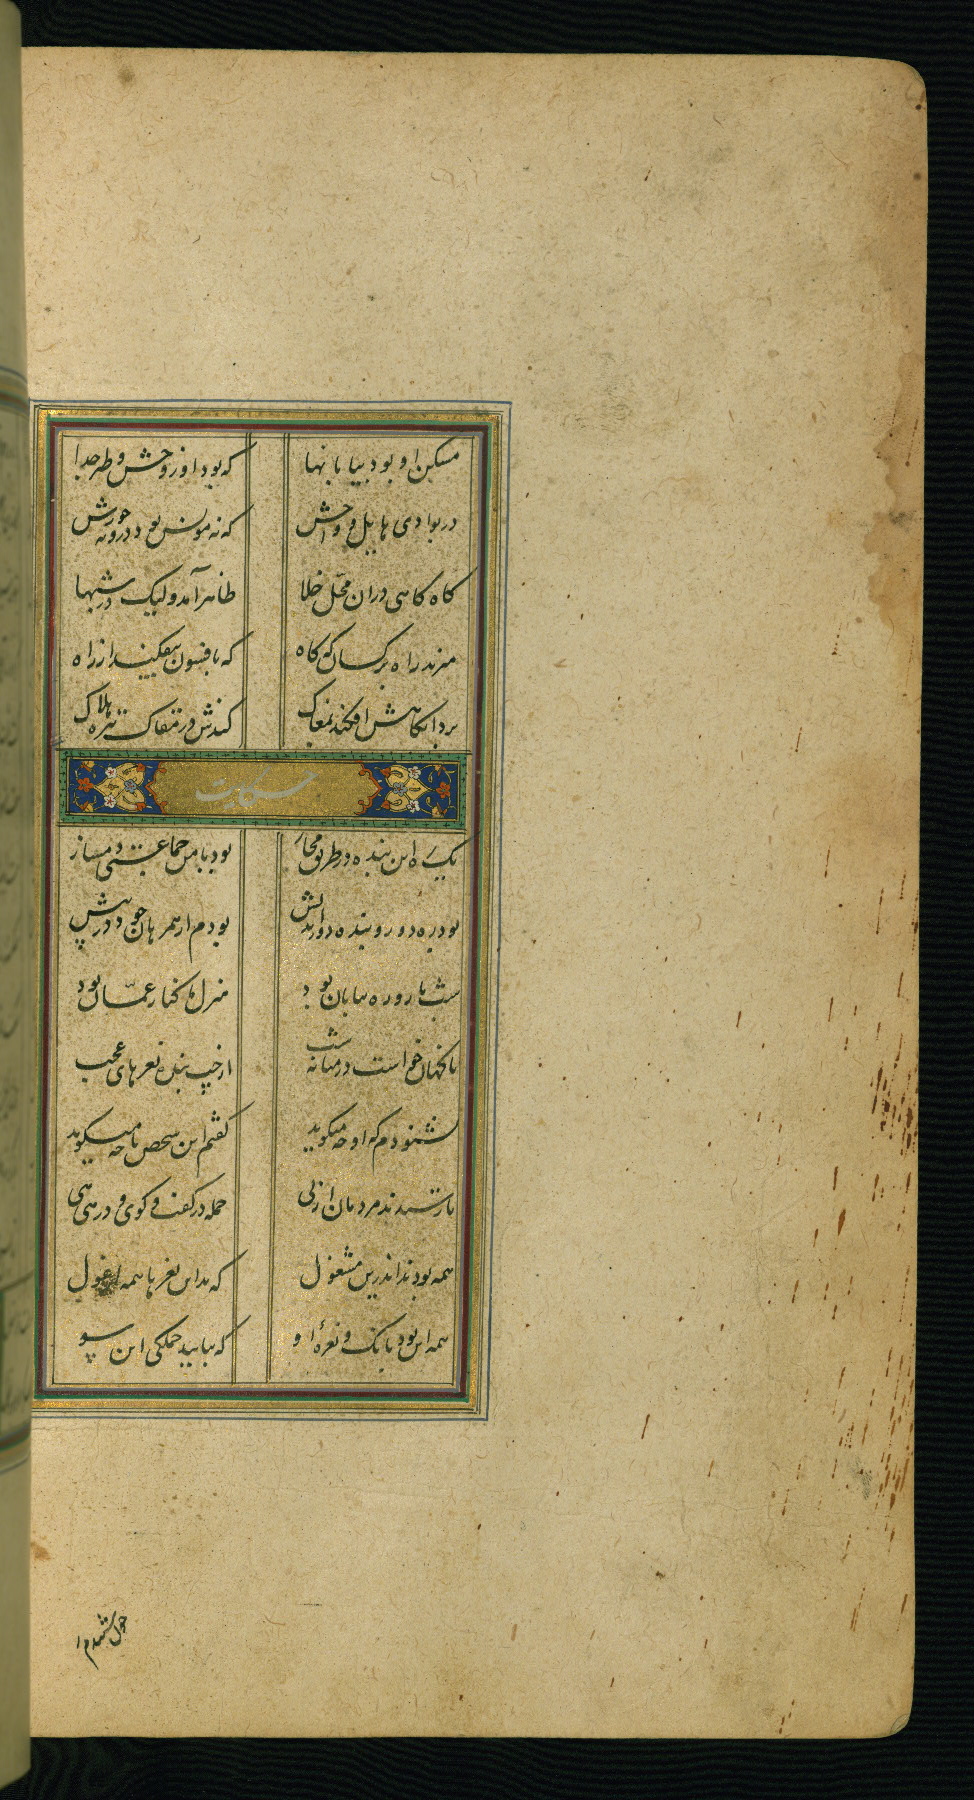 مسکن او بود بیابانها که بود او ز وحش و طیر جدا
در بوادی هایل و واحش که نه مونس بود درو نه خورش
کاه کاهی دران محل خلا ظاهر آمد ولیک در شبها
میزند راه بر کسان که کاه که بافسون بیفکند از راه
برد انکاهش افکند بمغاک کندش در مغاک تیره هلاک
حکایت
یک ره این بنده در طریق مجاز بود با من جماعتی دمساز
بود ره دور و بنده دور بودم از همرهان خود در پیش
شب تاریک و ره بیابان بود منزل ما کنار عمان بود
ناکهان خواست در میانه شب از چپ بنده نعرهای عجب
شنودم که او چه میکوید کفتم این شخص تا چه میکوید
تا رسیدند مردمان از پی جمله در کفت و کوی و در هی هی
همه بودند اندرین مشغول که بد این نعرها همه از غول
همه این بود بانک و نعرهٔ او که بیایید جملکی این سو
چون شنیدم